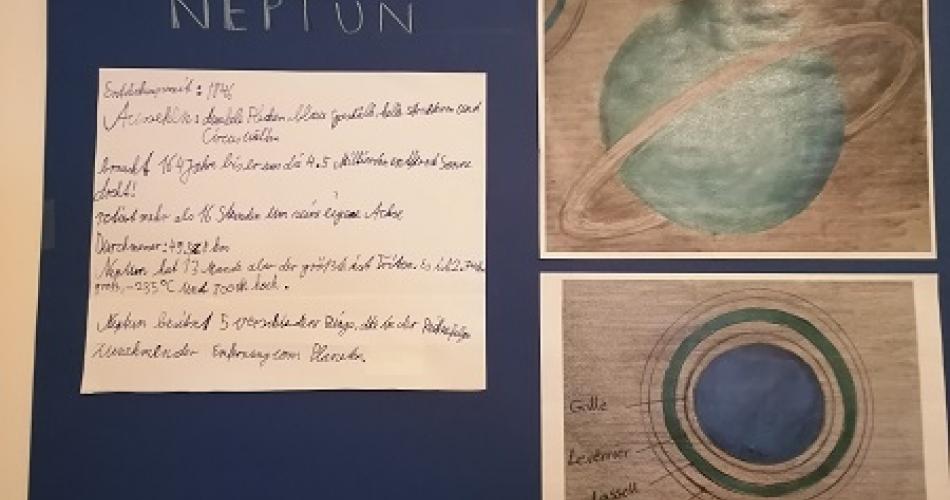 NEPTUN
Entdeckungszeit: 1846
Aussehen: dunkle Flecken blau helle Strukturen und
braucht 164 Jahre bis er um die 4.5 Milliarden entfernte Sonne
dreht!
rotiert mehr als 16 Stunden um seine eigene Achse
Durchmesser: km
Neptun hat 13 Monde aber der größte ist Triton. Es ist
groß, -235°C und hoch.
Neptun besitzt 5 verschiedene Ringe, die in der Reihenfolge
zunehmender Entfernung vom Planeten.
Galle
Leverrier
Lassell